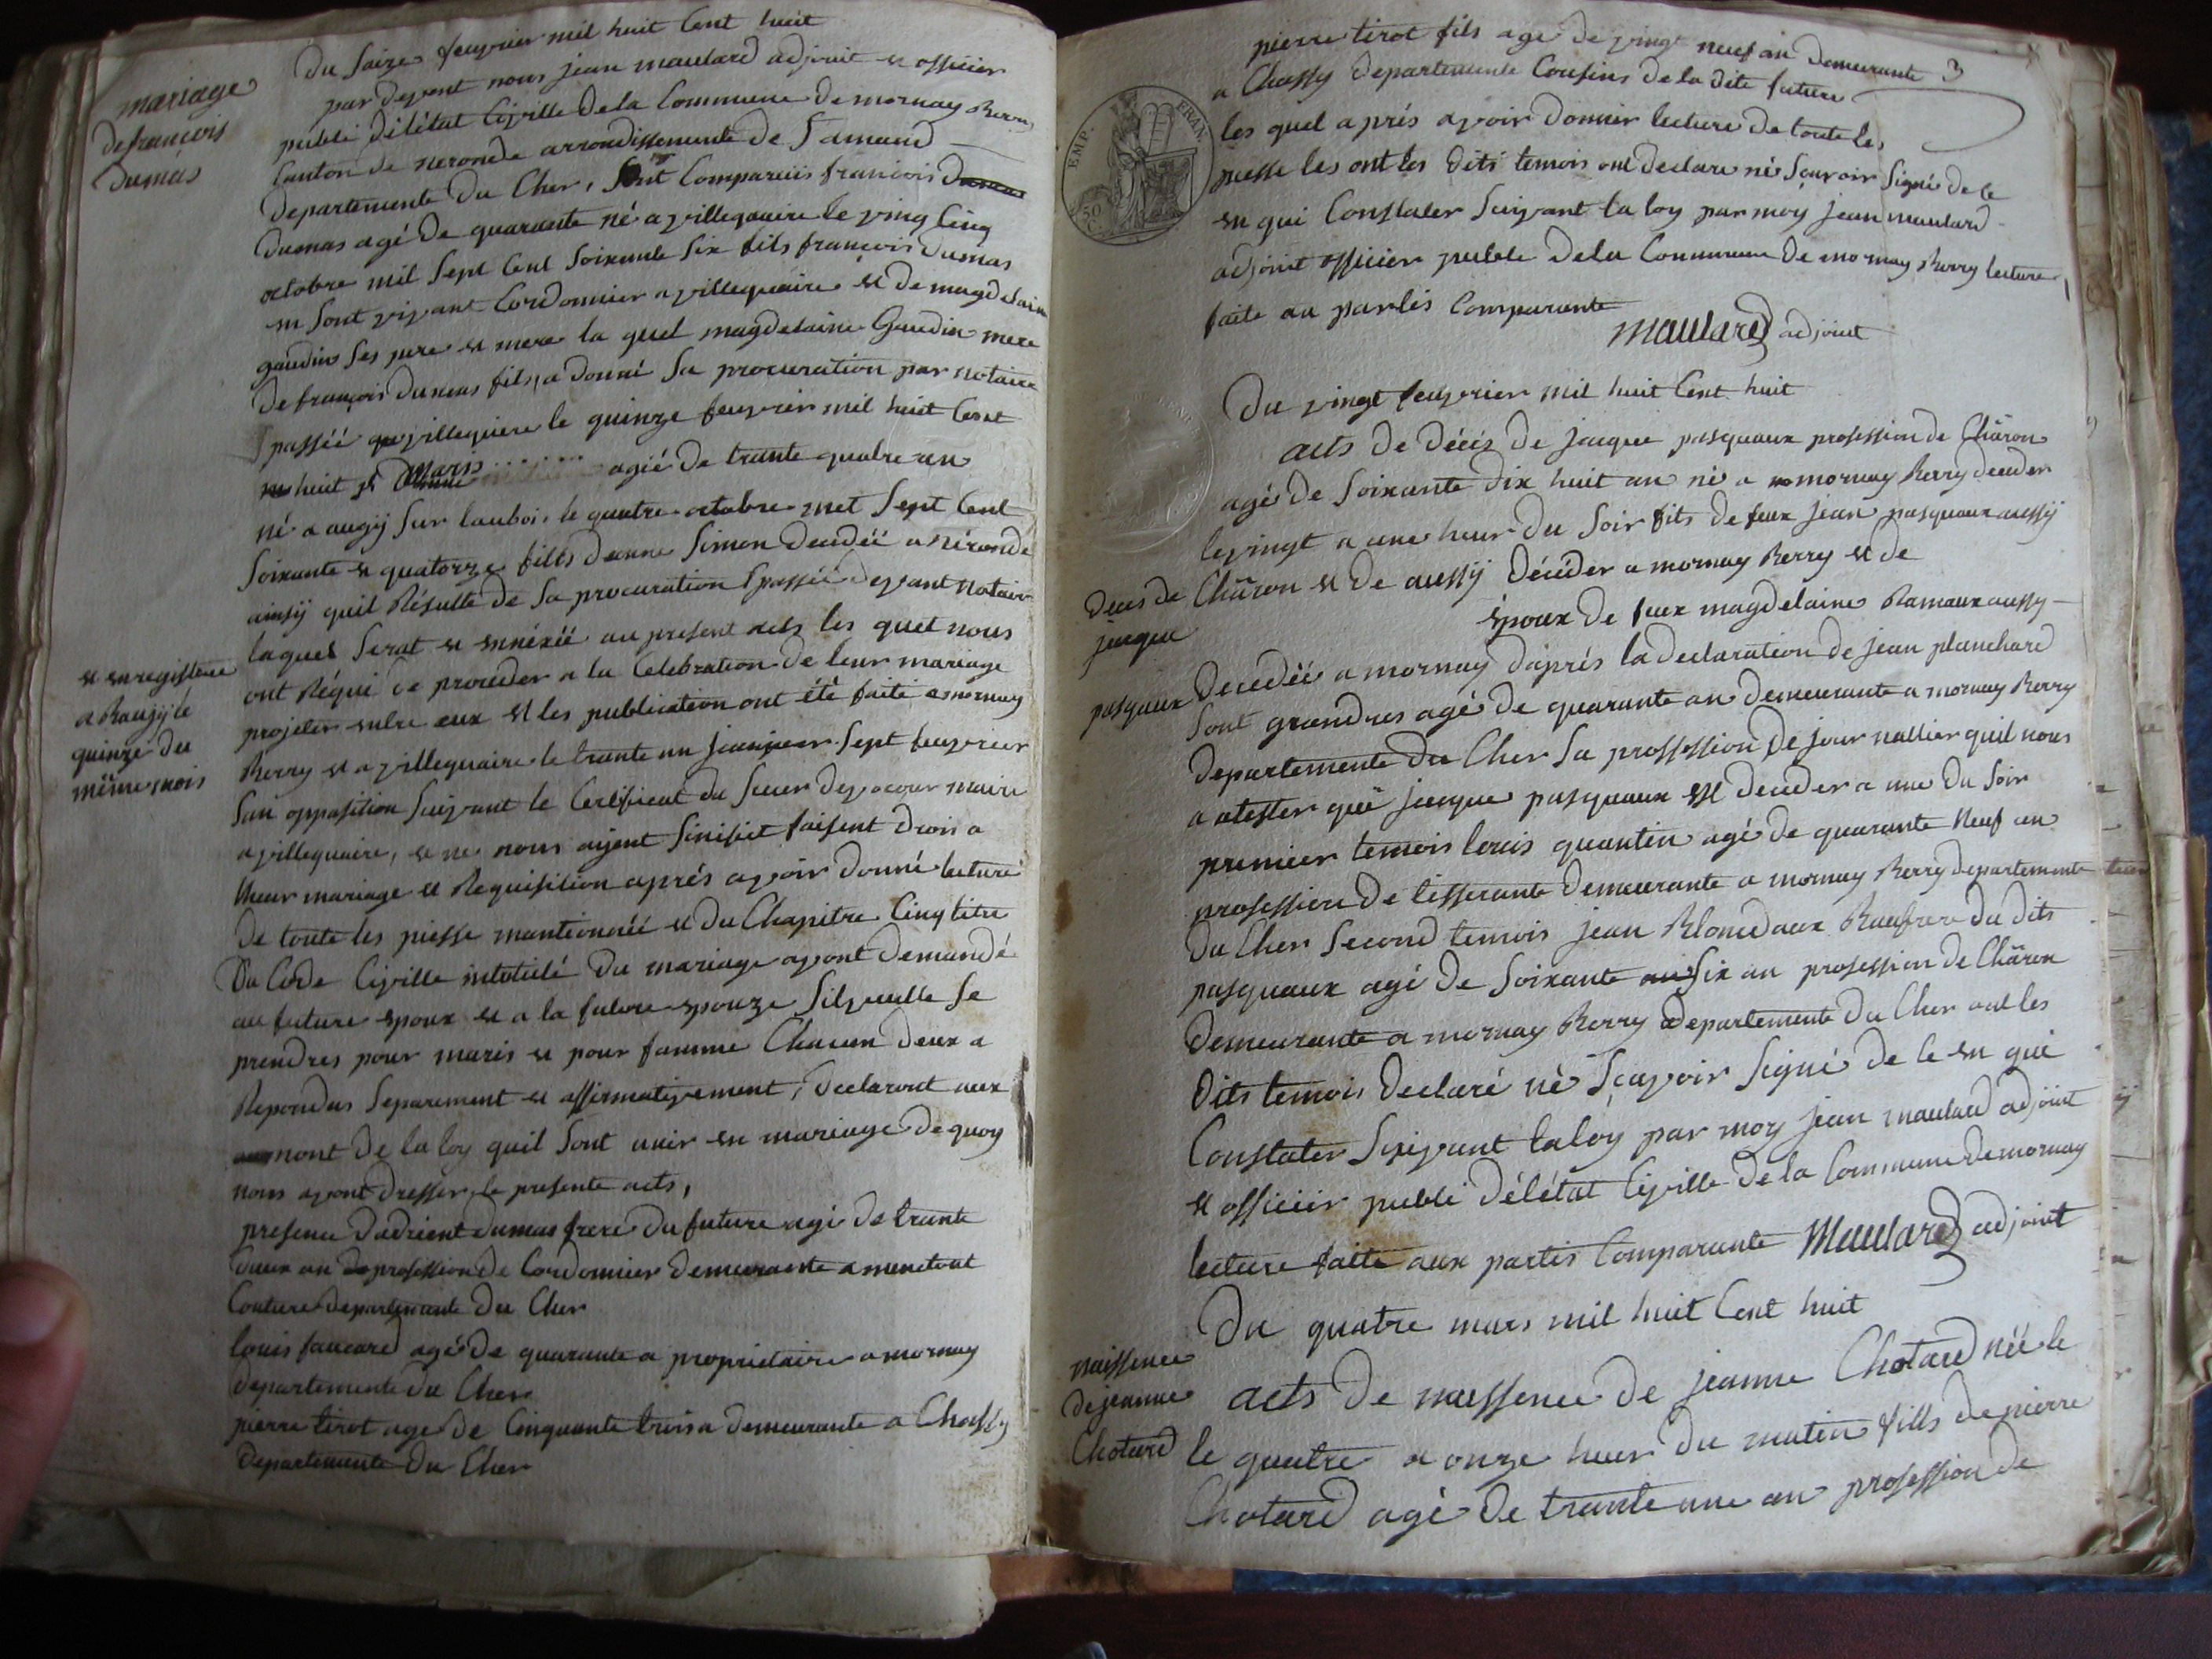 mariage
de francois
dumas
Du saize feuvrier mil huit Cent huit
par devent nous jean maulard adjoint et officier
publi délétat Civille de la Commune de mornay Berry
Canton de neronde arrondissemente de Samand
Departemente du Cher, sont Compareüs francois
Dumas agé de quarante né a villequaire le ving Cinq
octobre mil sept Cent soixante six fils francois Dumas
en sont vivant Cordonnier a villequaire et de magdelaine
gaudin ses pere et mere la quel magdelaine Gaudin mere
de françois Dumas fils, a donné sa procuration par notaire
passéé villequiere le quinze feuvrier mil huit Cent
huit et Marie agié de trante quatre an
né a augÿ sur laubois le quatre octobre met sept Cent
soixante et quatorze fills deanne Simon decedéé a nironde
ainsÿ quil Résulte de sa procuration passéé devant notaire
laquel serat et ennéxéé au present acts les quel nous
et enregistreuë
a Baugÿ le
quinze du
même mois
ont Réqui de proceder a la Celebration de leur mariage
projeter entre eux et les publication ont été faite a mornay
Berry et a villequaire le trante un sept feuvrier
san opposition suivant le Certificat du sieur devocour maire
a villequaire, et ne nous aijent sinifiet faisent droi a
lheur mariage et Requisition aprés avoir donné lecture
De toute les piesse mantionnéé et du Chapitre Cinq titre
Du Code Civille intutulé Du mariage avont Demandé
au future epoux et a la future epouze silveulle se
prendres pour maris et pour famme Chacun deux a
Repondus separement et affirmativement, declaront aux
nont de la loy quil sont unir en mariage de quoy
nous avont dresser le presente acts,
presence dadrient dumas frere du future agé de trante
deux an profession de Cordonnier demeurante a menetout
Couture departemante du Cher
louis faucard agé de quarante a proprietaire a mornay
departemente du Cher
pierre tirot age de Cinquante trois a demeurante a Chassy
departemente du Cher
pierre tirot fils age de vingt neuf an demeurante 3
a Chassy departemente Cousins de la dite future
EMP. FRAN.
50 C.
les quel aprés avoir donner lecture de toute les
piesse les ont les dits temois ont declare né scavoir signé de le
en qui Constater suivant la loy par moÿ jean maulard
adjoint officier puble de la Commune de mornay Berry lecture
faite au partis Comparante
maulard adjoint
Du vingt feuvrier mil huit Cent huit
acts de décéz de jacque pasquaux profession de Chäron
agé de soixante dix huit an né a mornay Berry deceder
le vingt a une heur du soir fils de feux jean pasquaux aussÿ
Deces de
jacque
pasquaux
Chäron et de aussÿ décéder a mornay Berry et de
époux de feux magdelaine Ramaux aussy
Decedéé a mornay d'aprés la declaration de jean planchard
sont grendres agé de quarante an demeurante a mornay Berry
departemente du Cher sa proffession de jour nallier quil nous
a atester que jacque pasquaux est deceder a une du soir
premier temois louis quantin agé de quarante neuf an
profession de tisserante demeurante a mornay Berry departemente
du Cher second temois jean Blondaux Baufrere du dits
pasquaux agé de soixante six an profession de Chäron
demeurante a mornay Berry departemente du Cher ont les
dits temois declaré né scavoir signé de le en qui
Constater suivant la loÿ par moy jean maulard adjoint
et officier publi délétat Civille de la Commune de mornay
lecture faite aux partis Comparante Maulard adjoint
Du quatre mars mil huit Cent huit
naissence
de jeanne
Chotard
acts de naissence de jeanne Chotard néé le
le quatre a onze heur du matin fills de pierre
Chotard agé de trante une an profession de